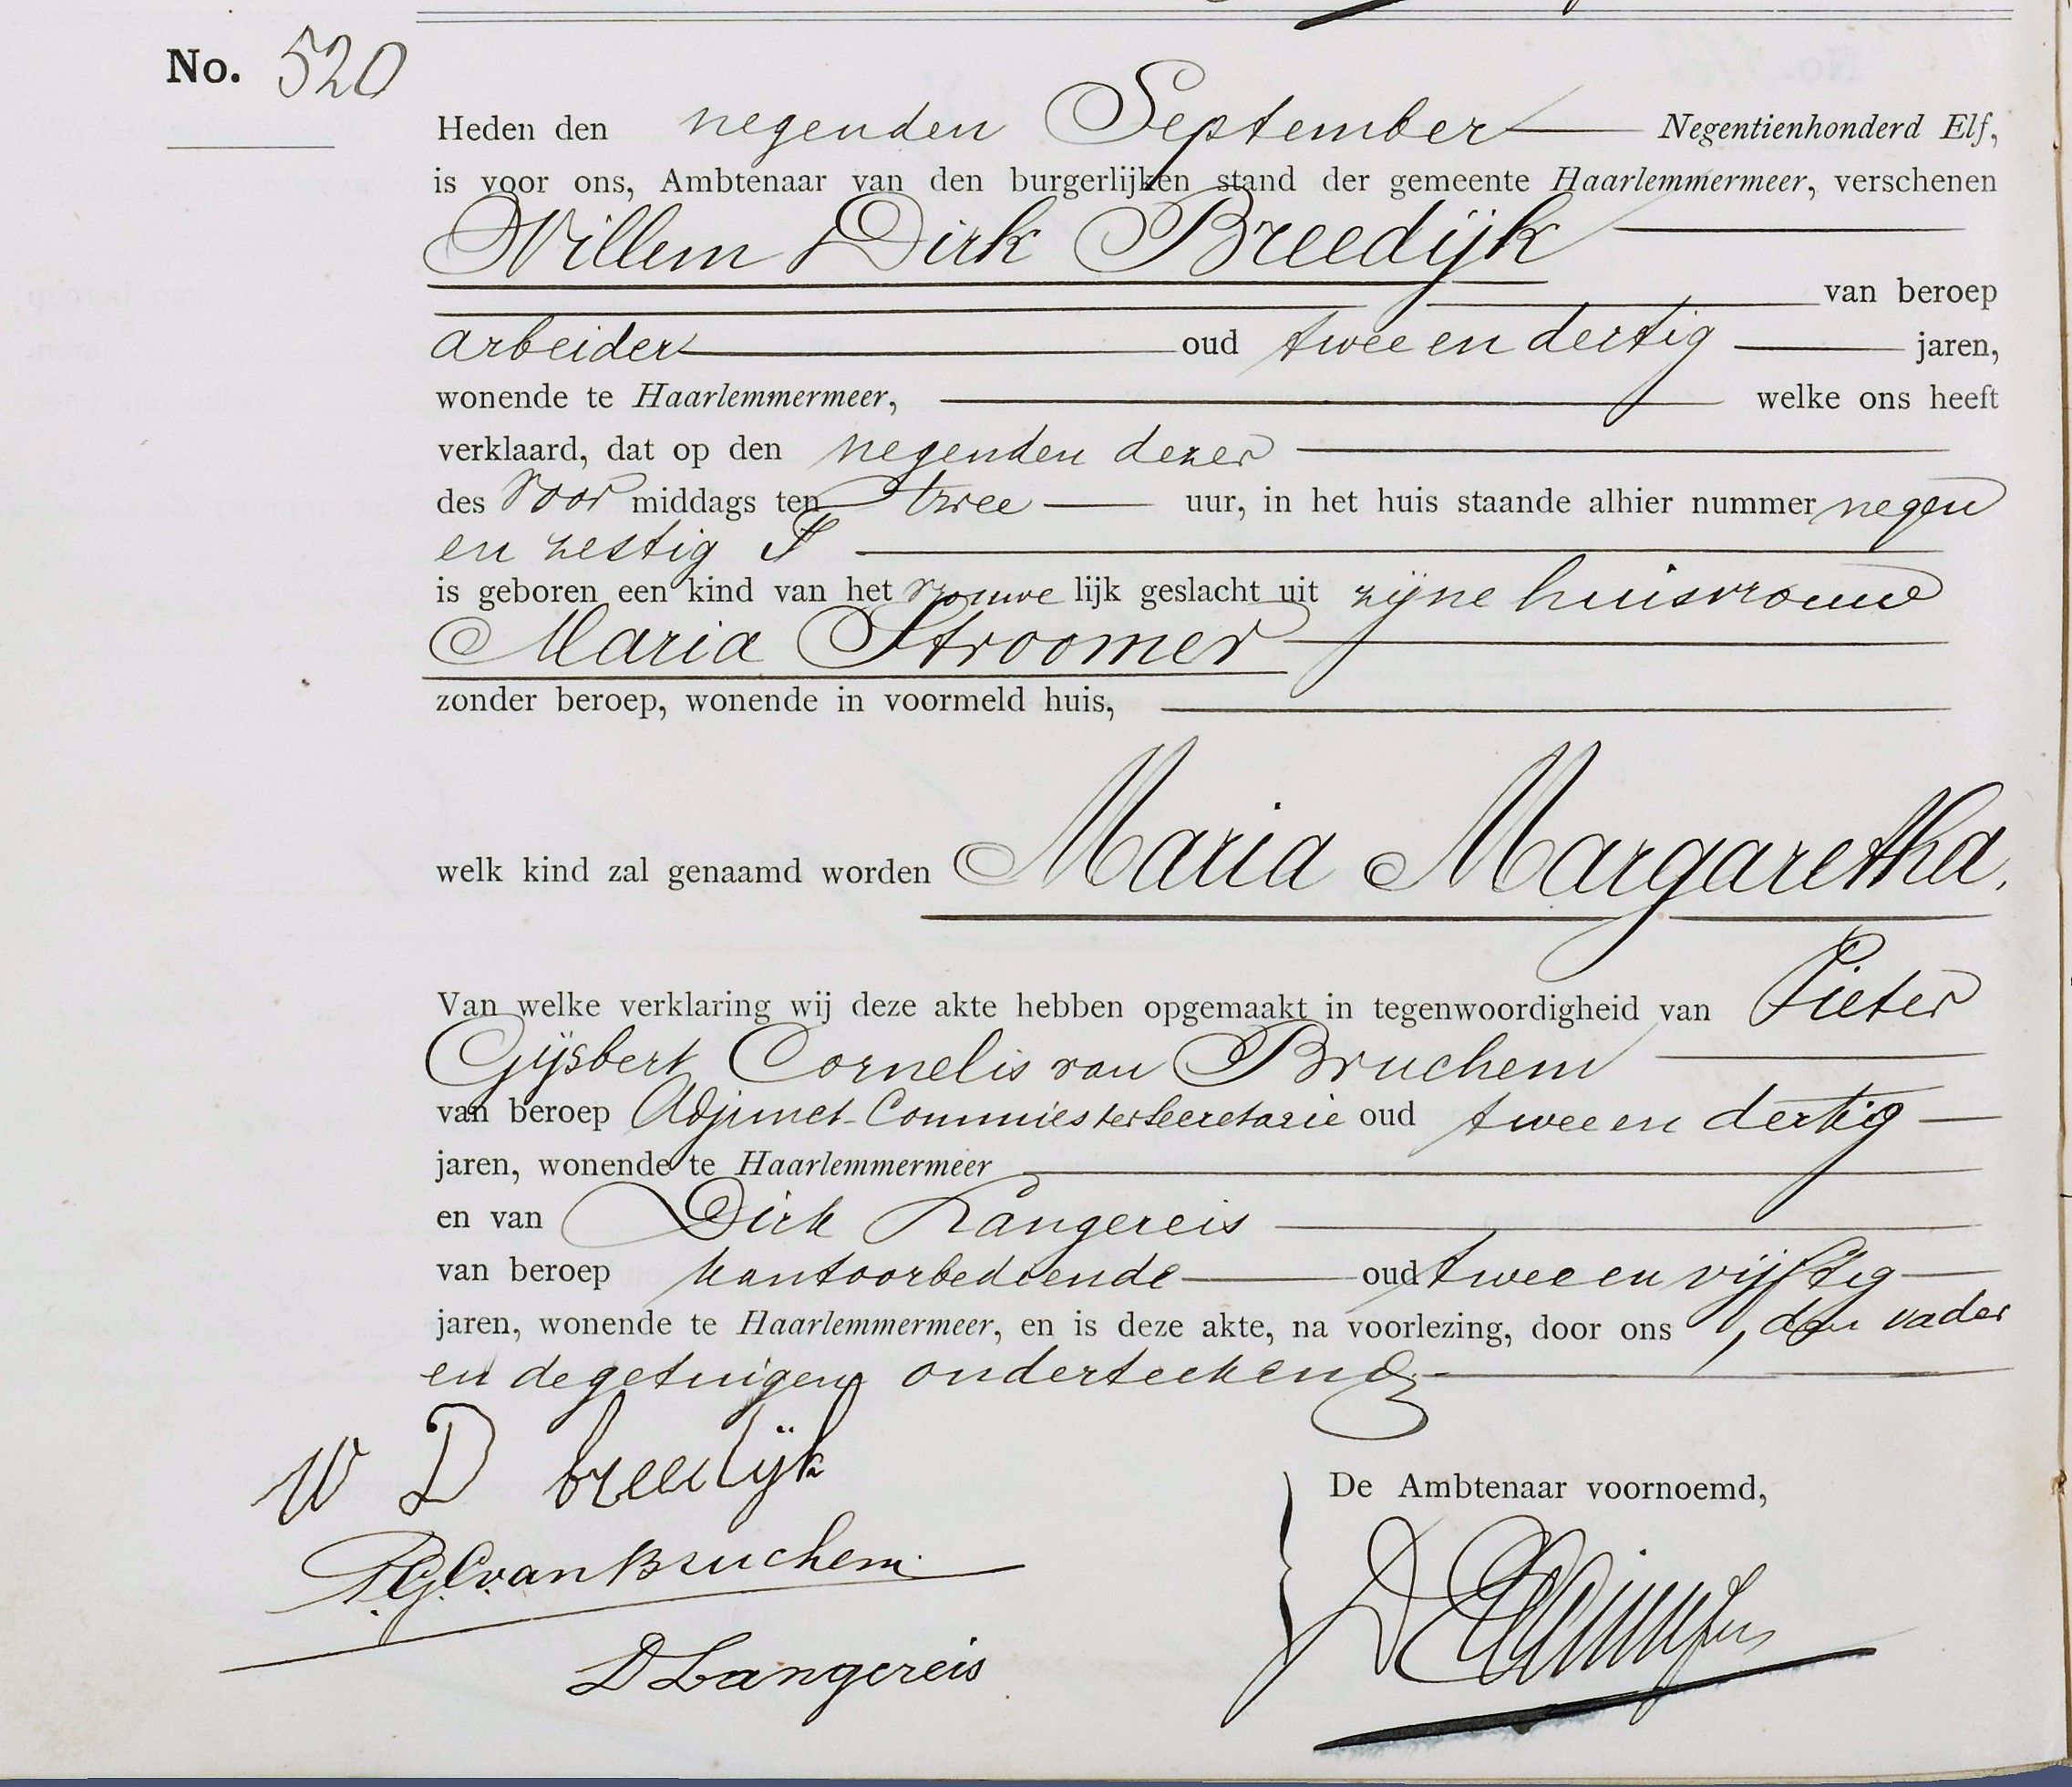 No. 520
Heden den negenden September Negentienhonderd Elf,
is voor ons, Ambtenaar van den burgerlijken stand der gemeente Haarlemmermeer, verschenen
Willem Dirk Breedijk
van beroep
arbeider oud twee en dertig jaren,
wonende te Haarlemmermeer, welke ons heeft
verklaard, dat op den negenden dezer
des voor middags ten twee uur, in het huis staande alhier nummer negen
en zestig
is geboren een kind van het vrouwe lijk geslacht uit zijne huisvrouw
Maria Stroomer
zonder beroep, wonende in voormeld huis,
welk kind zal genaamd worden Maria Margaretha.
Van welke verklaring wij deze akte hebben opgemaakt in tegenwoordigheid van Pieter
Gijsbert Cornelis van Bruchem
van beroep Adjunct-Commies ter Secretarie oud twee en dertig
jaren, wonende te Haarlemmermeer
en van Dirk Langereis
van beroep kantoorbediende oud twee en vijftig
jaren, wonende te Haarlemmermeer, en is deze akte, na voorlezing, door ons, den vader
en de getuigen onderteekend
W D breedijk
De Ambtenaar voornoemd,
P.G.C. van Bruchem.
D Langereis